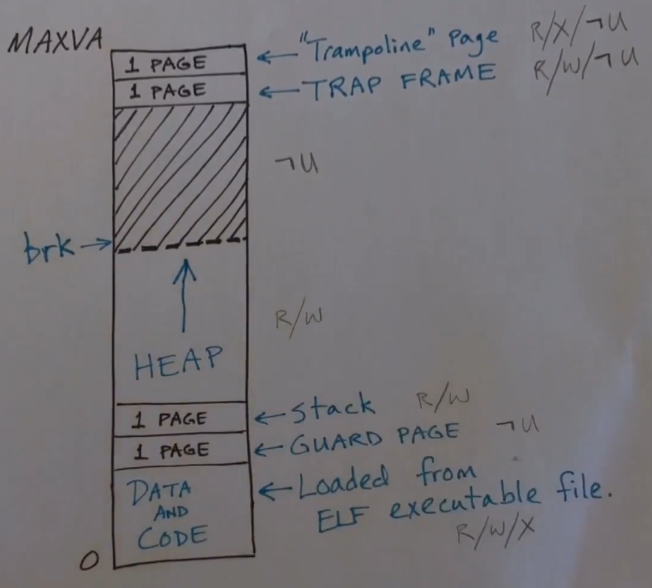 MAXVA
1 PAGE ← "Trampoline" Page R/X/¬U
1 PAGE ← TRAP FRAME R/W/¬U
¬U
brk →
R/W
HEAP
1 PAGE ← Stack R/W
1 PAGE ← GUARD PAGE ¬U
DATA ← Loaded from
AND ELF executable file.
CODE R/W/X
0